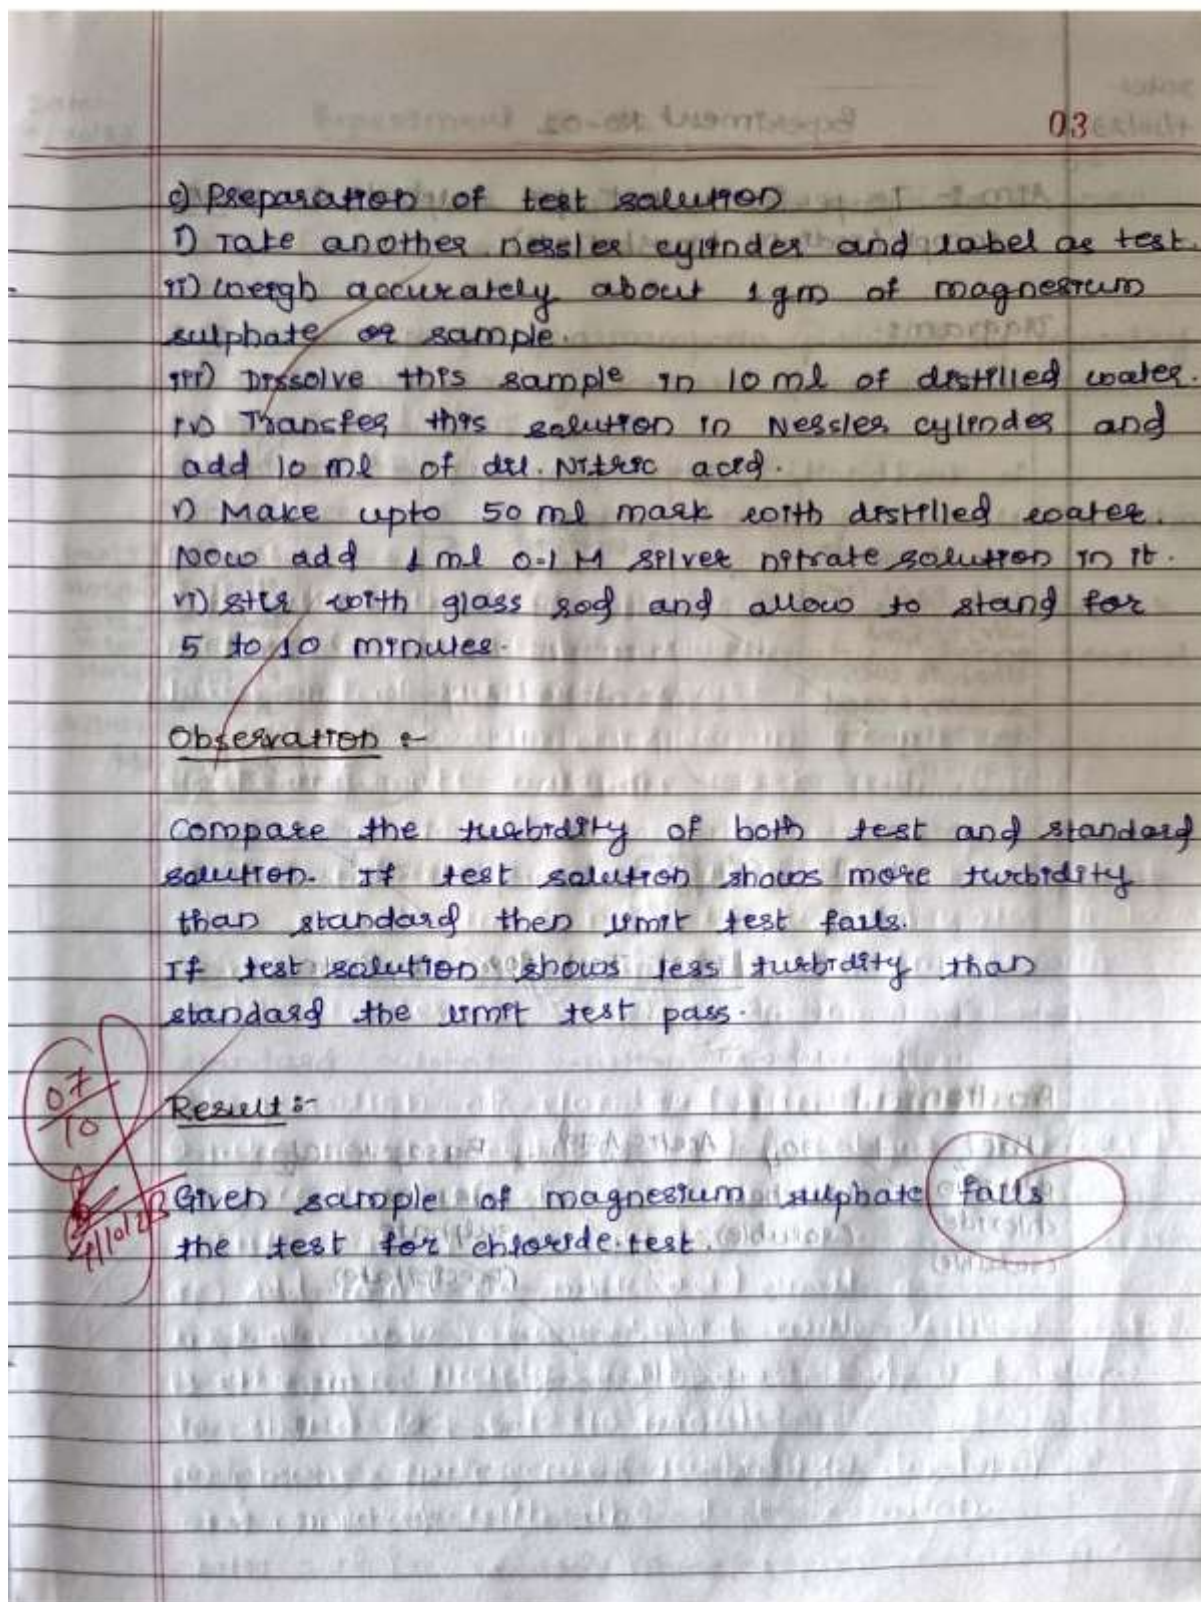 03
c) Preparation of test solution
i) Take another nessler cylinder and label as test.
ii) Weigh accurately about 1 gm of magnesium
sulphate or sample.
iii) Dissolve this sample in 10 ml of distilled water.
iv) Transfer this solution in Nessler cylinder and
add 10 ml of dil. Nitric acid.
v) Make upto 50 ml mark with distilled water.
Now add 1 ml 0.1 M silver nitrate solution in it.
vi) Stir with glass rod and allow to stand for
5 to 10 minutes.
Observation :-
Compare the turbidity of both test and standard
solution. If test solution shows more turbidity
than standard then limit test fails.
If test solution shows less turbidity than
standard the limit test pass.
07
10
Result :-
Given sample of magnesium sulphate fails
the test for chloride.test.